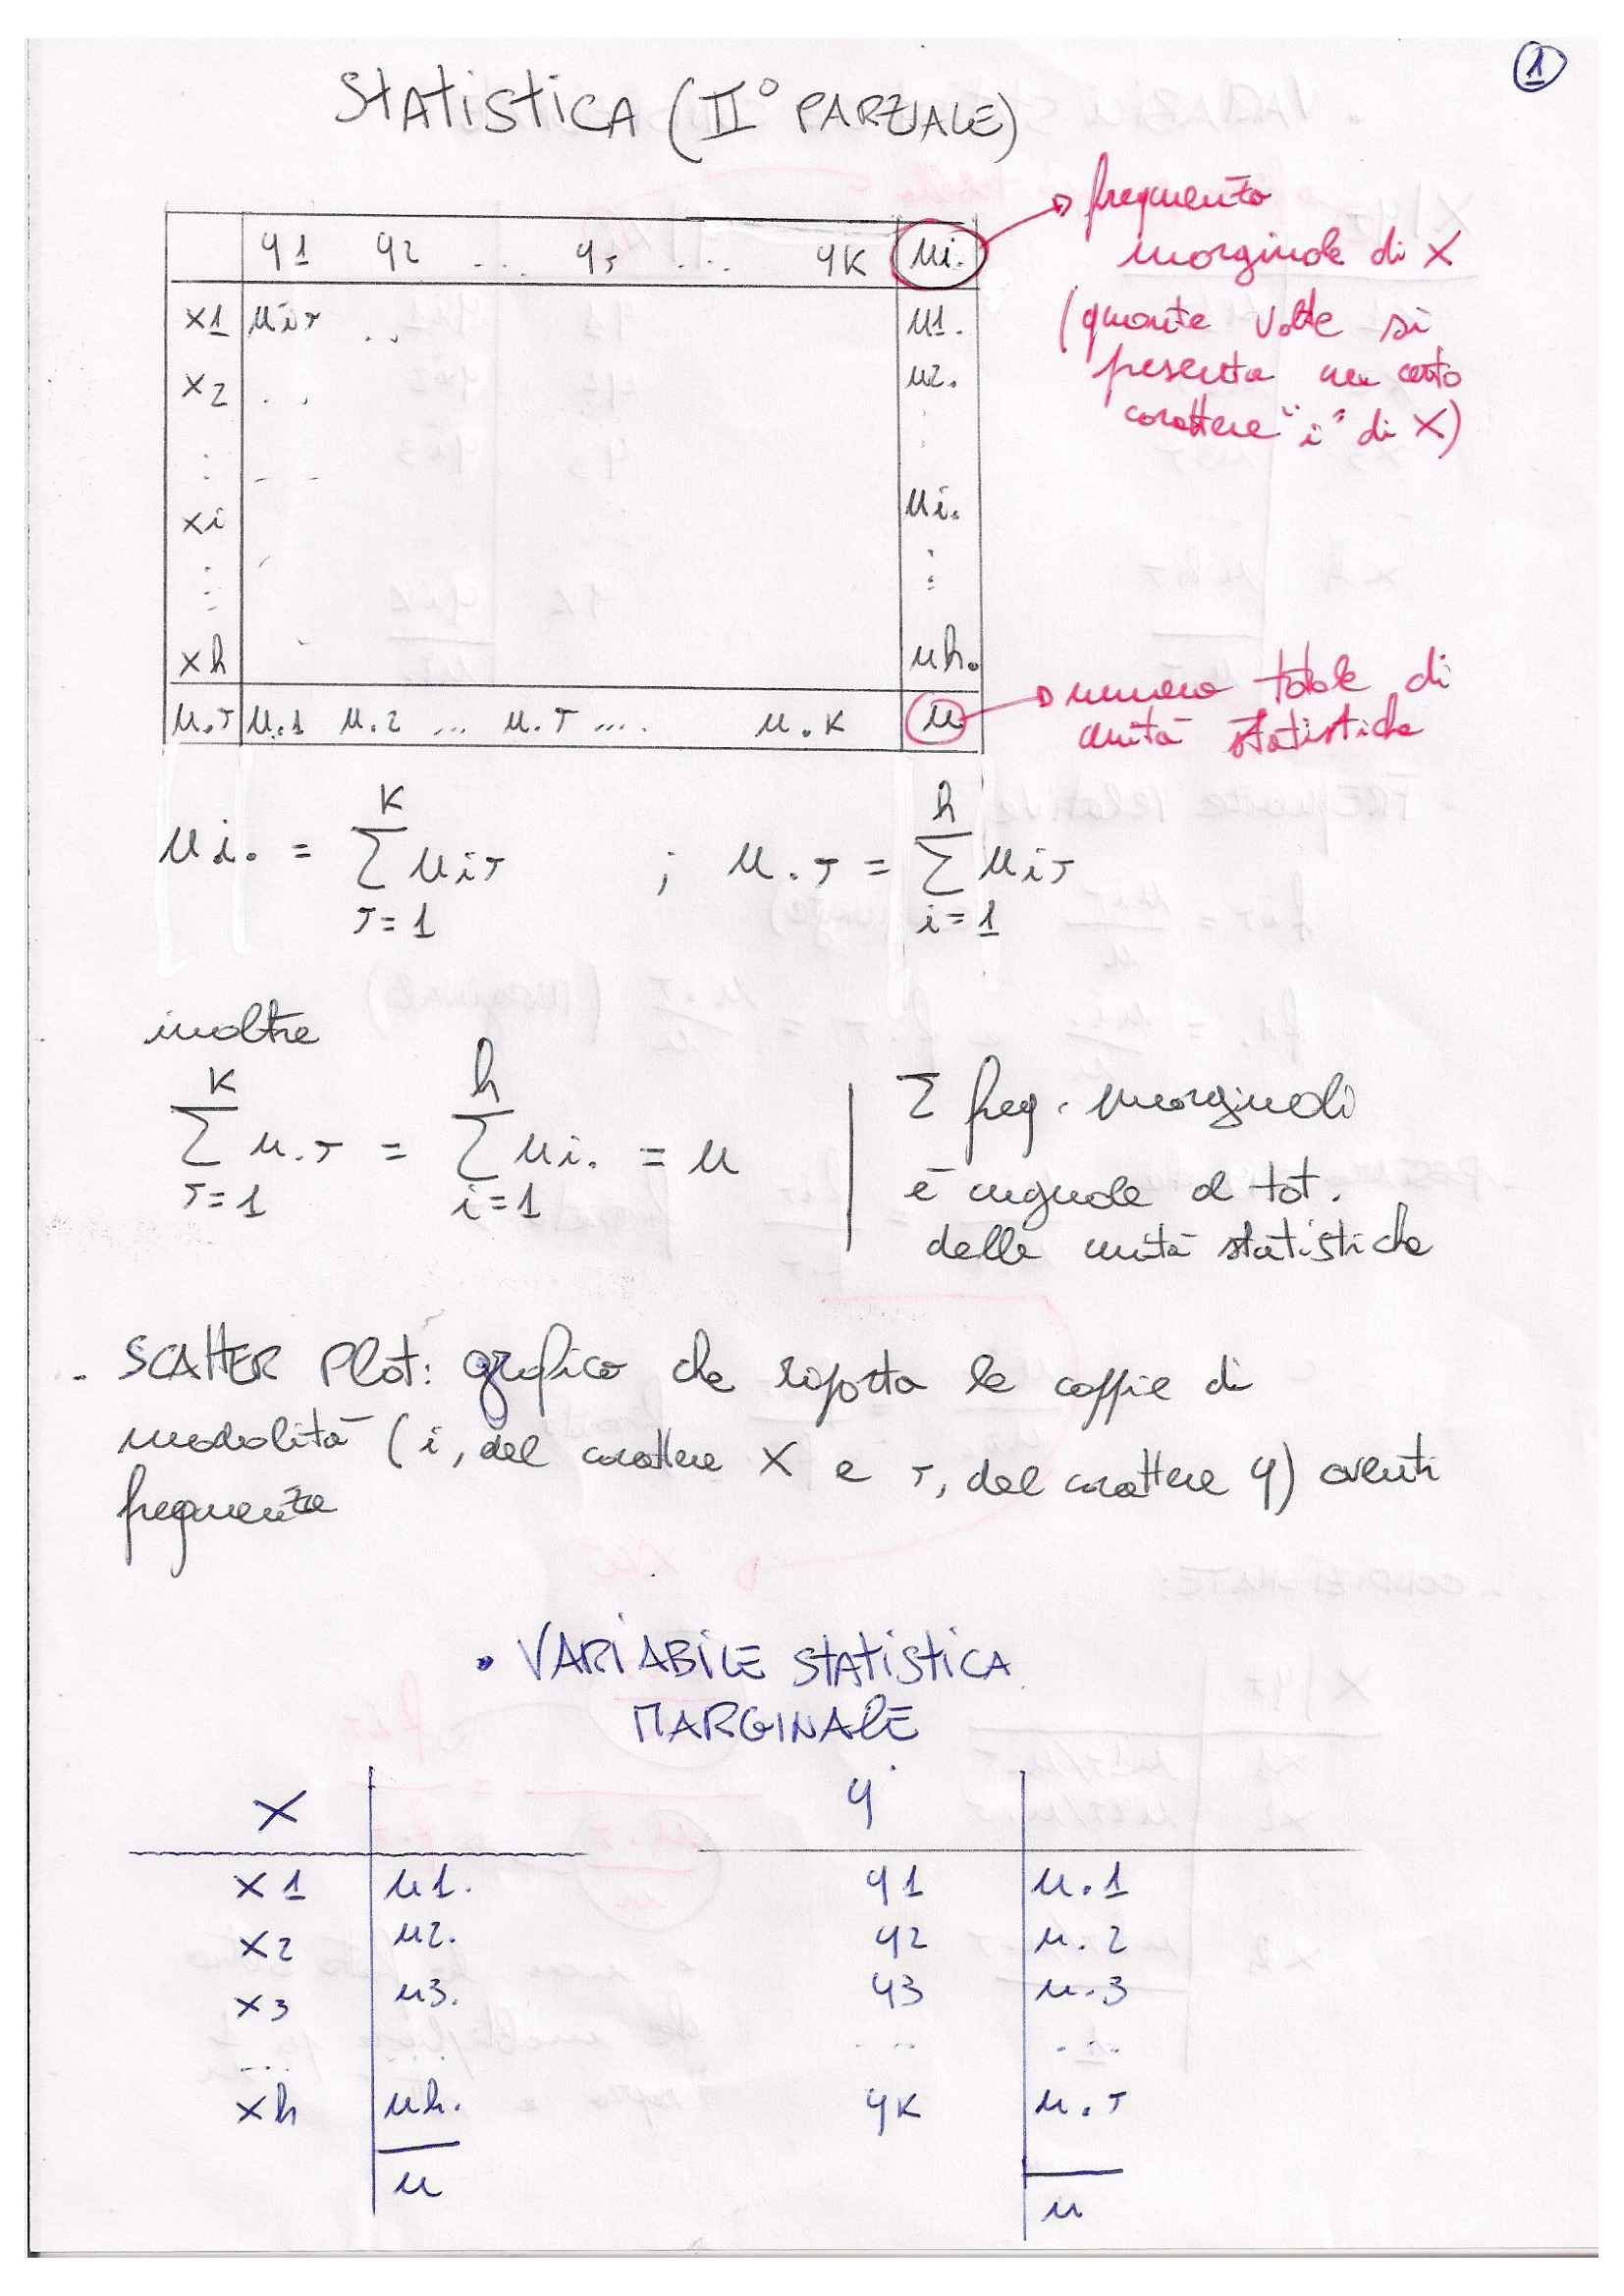 1
Statistica (II° PARZIALE)
y1 y2 ... yJ ... yK ni.
x1 niJ .. n1.
x2 .. n2.
xi ni.
xh nh.
n.J n.1 n.2 ... n.J .... n.K n
frequenza
marginale di X
(quante volte si
presenta un certo
carattere "i" di X)
numero totale di
unità statistiche
ni. = K ∑ J=1 niJ ; n.J = h ∑ i=1 niJ
inoltre
K ∑ J=1 n.J = h ∑ i=1 ni. = n
Σ freq. marginali
è uguale al tot.
delle unità statistiche
- SCAtteR Plot: grafico che riporta le coppie di
modalità (i, del carattere X e J, del carattere Y) aventi
frequenza
• VARIABILE StAtiStiCA
MARGINAlE
X Y
x1 n1. y1 n.1
x2 n2. y2 n.2
x3 n3. y3 n.3
... ... ... ...
xh nh. yK n.J
n n